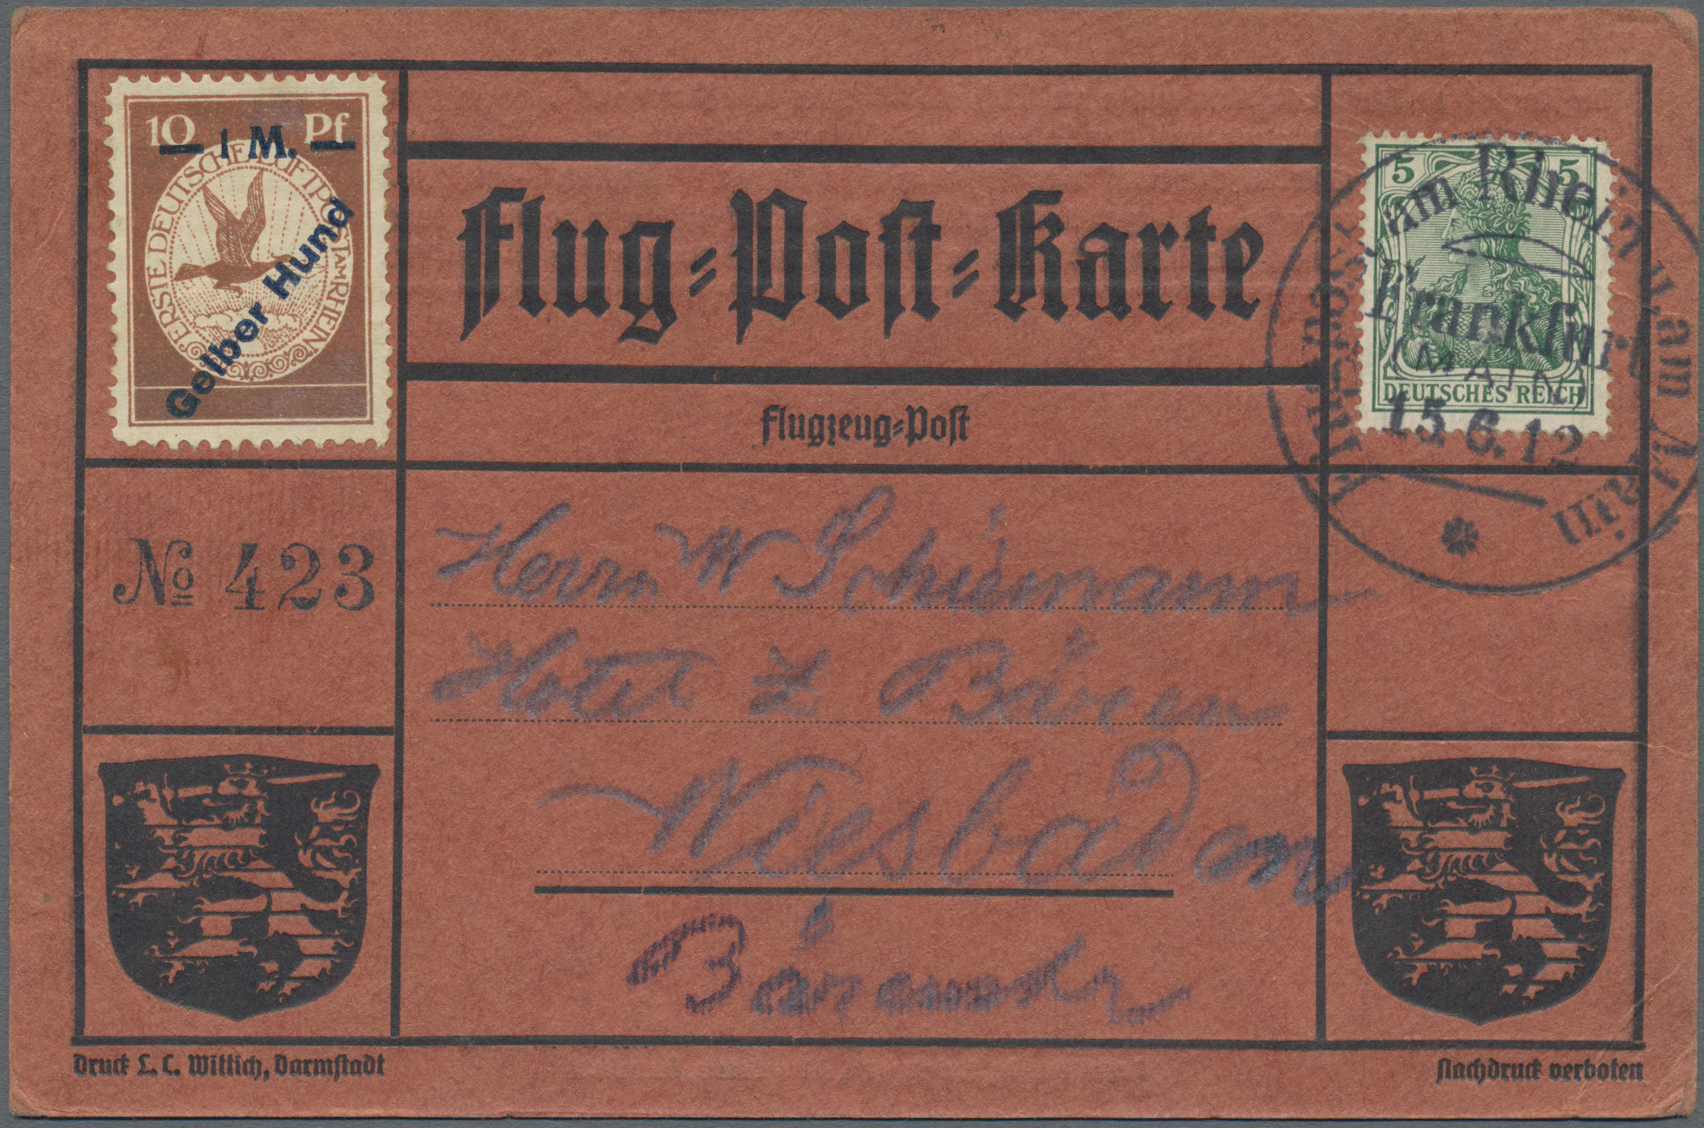 10 Pf
1 M.
ERSTE DEUTSCHE LUFTPOST AM RHEIN
Gelber Hund
Flug-Post-Karte
Flugzeug-Post
5 5
DEUTSCHES REICH
Flugpost am Rhein u. am Main
Frankfurt
(MAIN)
15.6.12
No 423
Herrn W Schiemann
Hotel z Bären
Wiesbaden
Bärenstr
Druck L. C. Wittich, Darmstadt
Nachdruck verboten